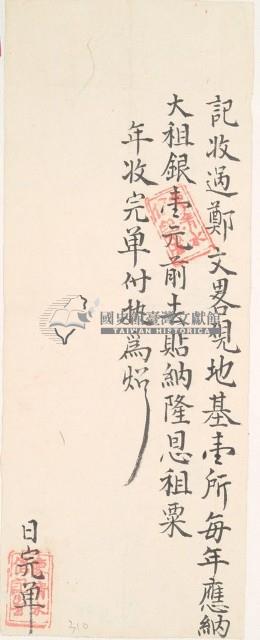 記收過鄭文畧覓地基壹所每年應納
大祖銀壹元前去貼納隆恩租粟
年收完单付执為炤
日完单
國史館臺灣文獻館
TAIWAN HISTORICA
310